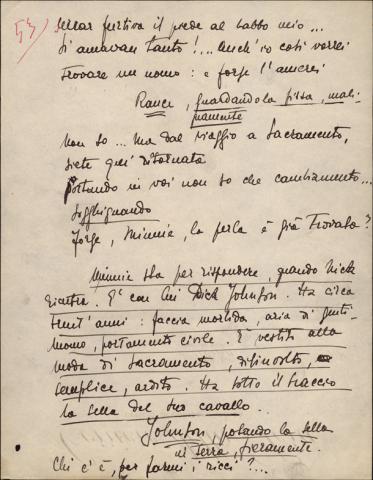 53)
serrar furtiva il piede al babbo mio...
Si amavan tanto!... Anch'io così vorrei
trovare un uomo: e forse l'amerei
Rance, guardandola fissa, mali-
gnamente
Non so... ma dal viaggio a Sacramento,
siete qui ritornata
portando in voi non so che cambiamento...
sogghignando
Forse, Minnie, la perla è già trovata?
Minnie sta per rispondere, quando Nick
rientra. E' con lui Dick Johnson. Ha circa
trent'anni: faccia morbida, aria di gentil-
uomo, portamento civile. E' vestito alla
moda di Sacramento, disinvolto,
semplice, ardito. Ha sotto il braccio
la sella del suo cavallo.
Johnson, posando la sella
in terra, fieramente.
Chi c'è, per farmi i ricci?...